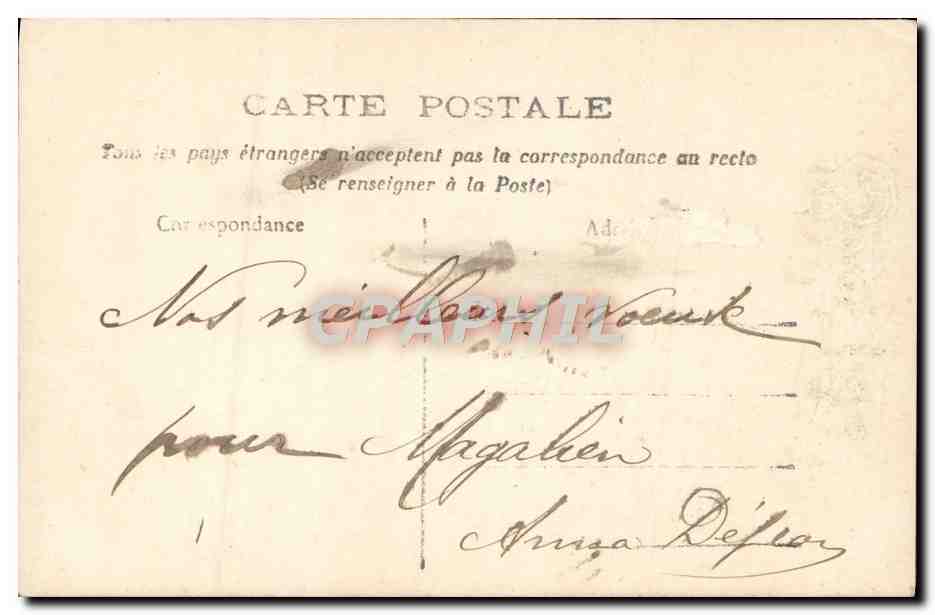 CARTE POSTALE
Tous les pays étrangers n'acceptent pas la correspondance au recto
(Se renseigner à la Poste)
Correspondance
Nos meilleurs voeux
CPAPHIL
pour Magalien
Anna